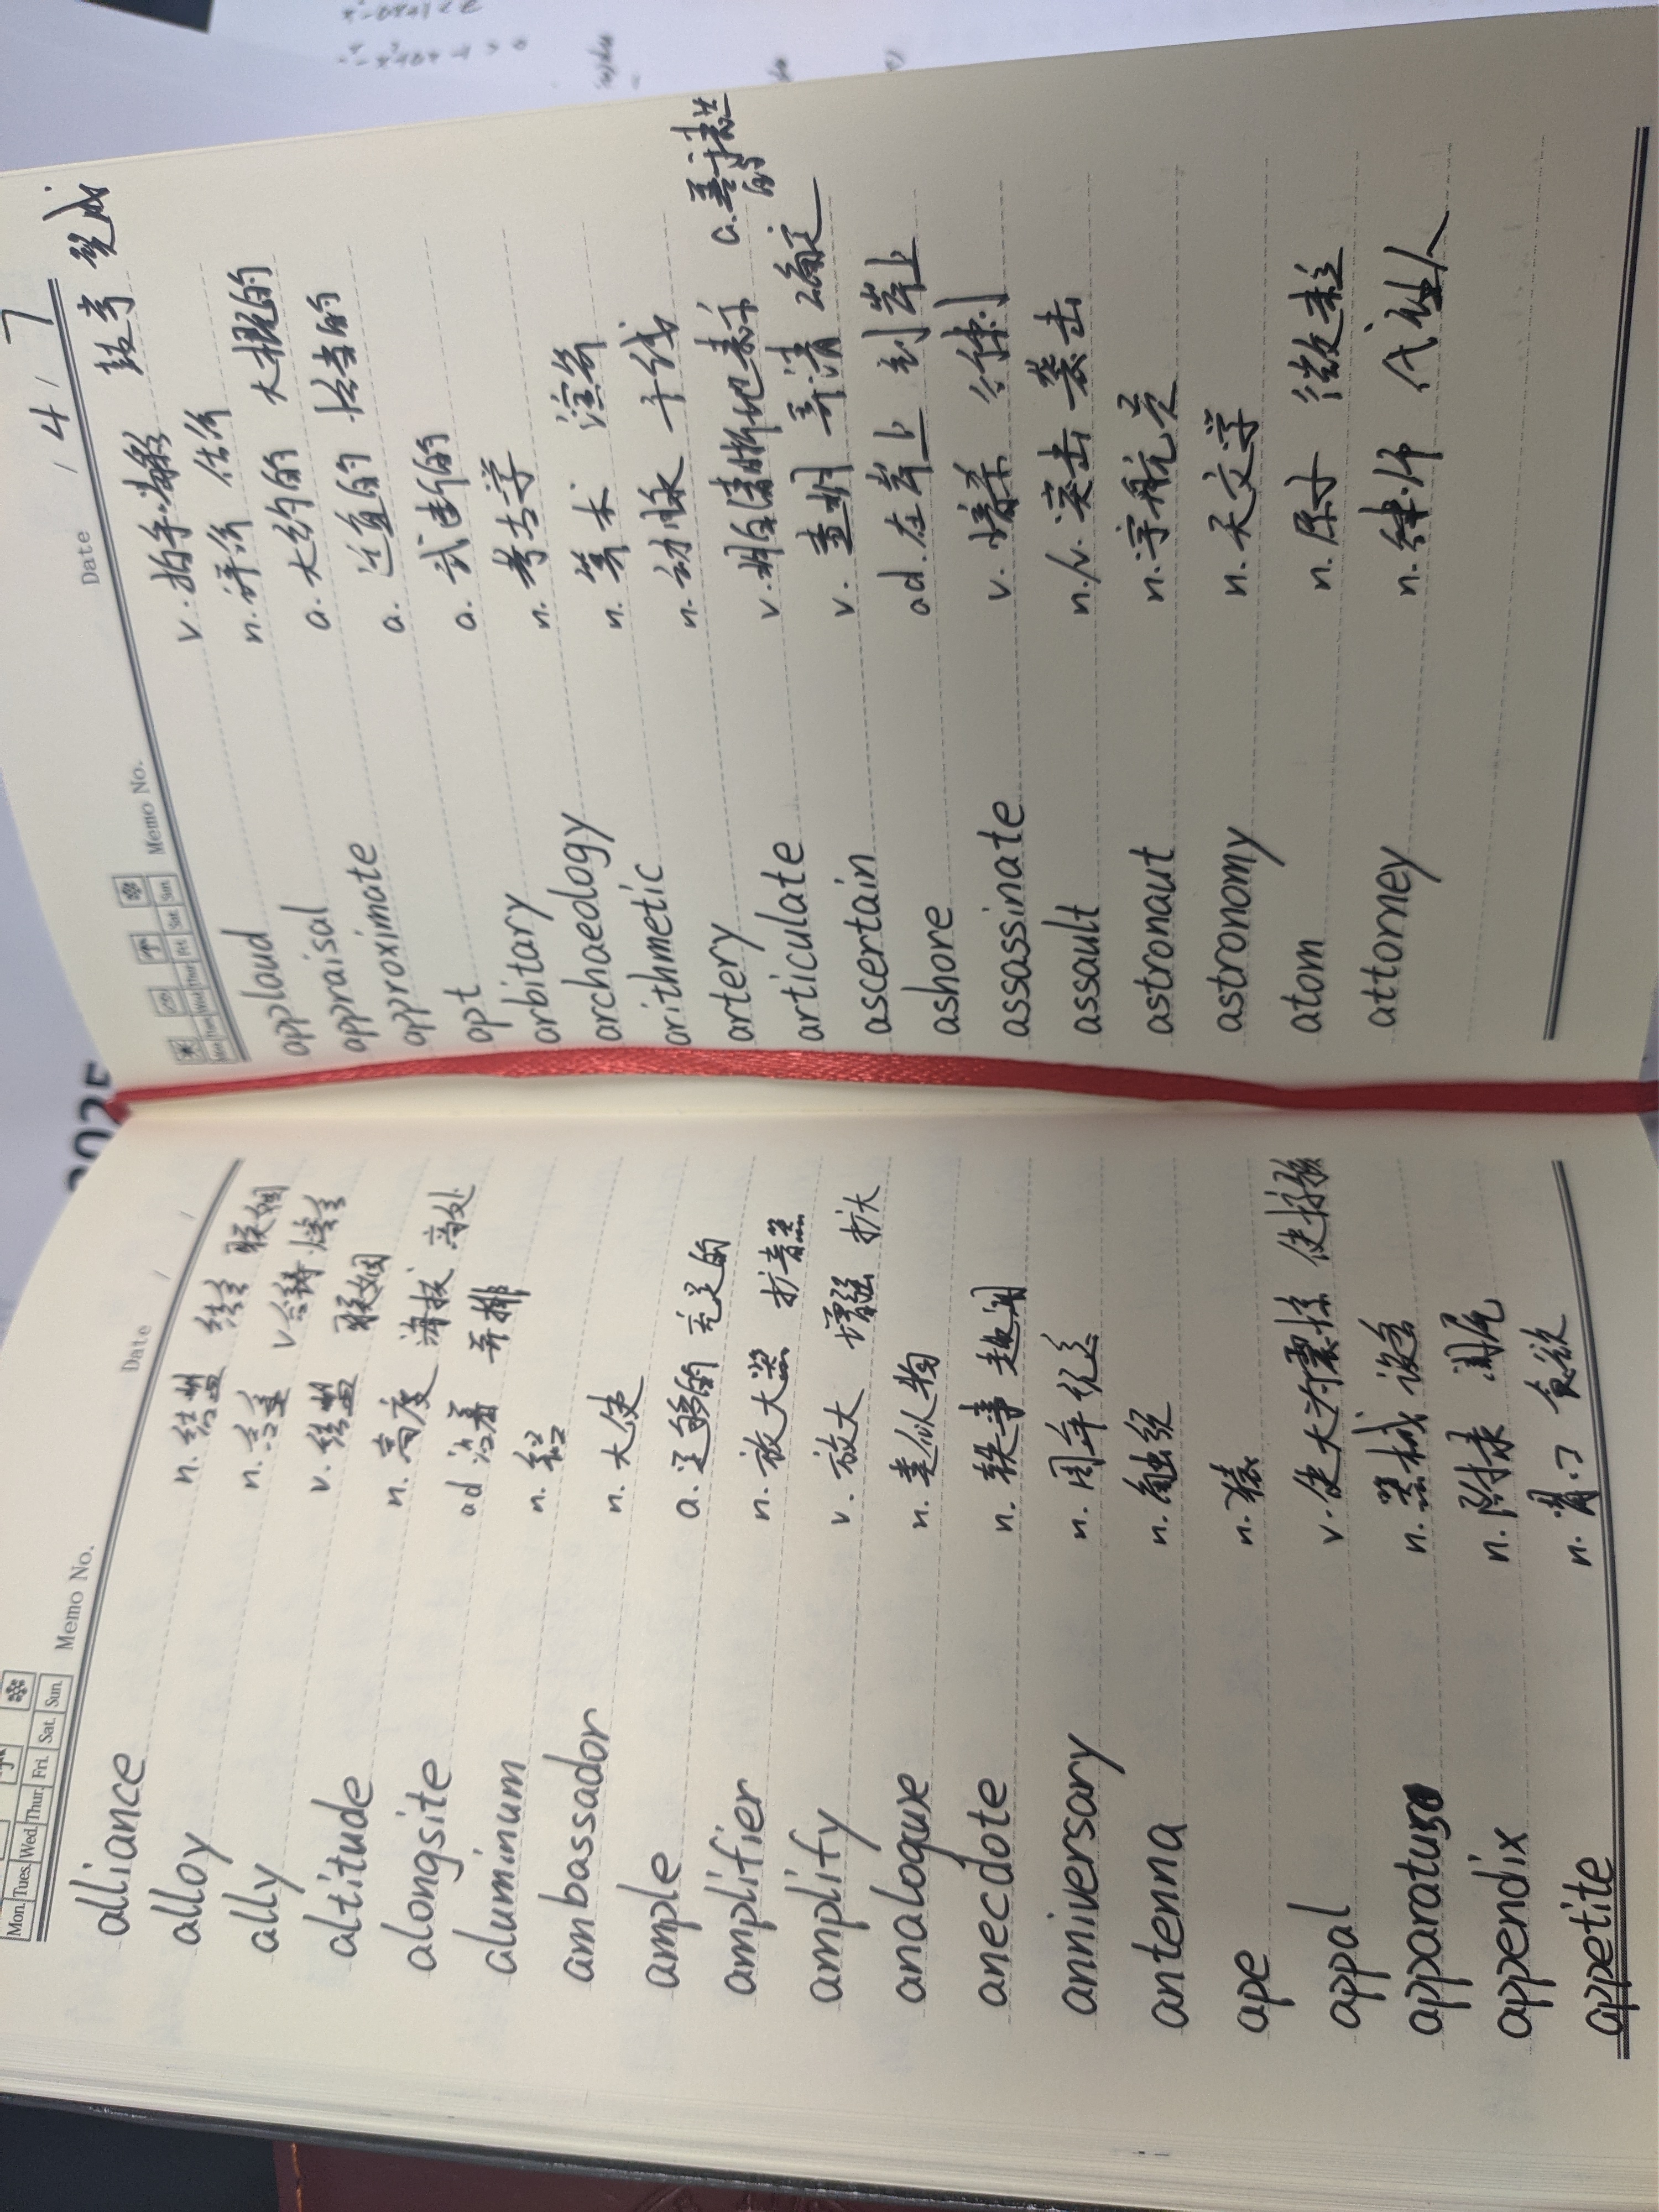 Mon. Tues. Wed. Thur. Fri. Sat. Sun.
Memo No.
Date / /
alliance n. 结盟 结合 联姻
alloy n. 合金 v 合铸 熔合
ally v. 结盟 联姻
altitude n. 高度 海拔 高处
alongsite ad 沿着 并排
aluminum n. 铝
ambassador n. 大使
ample a. 足够的 充足的
amplifier n. 放大器 扩音器
amplify v. 放大 增强 扩大
analogue n. 类似物
anecdote n. 轶事 趣闻
anniversary n. 周年纪念
antenna n. 触须
ape n. 猿
appal v. 使大为震惊 使惊骇
apparatus n. 器械 设备
appendix n. 附录 阑尾
appetite n. 胃口 食欲
Mon. Tues. Wed. Thur. Fri. Sat. Sun.
Memo No.
Date / 4 / 7
applaud v. 拍手喝彩 鼓掌 赞成
appraisal n. 评价 估价
approximate a. 大约的 大概的
apt a. 适宜的 恰当的
arbitary a. 武断的
archaeology n. 考古学
arithmetic n. 算术 演算
artery n. 动脉 干线
articulate v. 明白清晰地表示 a. 善于表达的
ascertain v. 查明 弄清 确定
ashore ad. 在岸上 到岸上
assassinate v. 暗杀 行刺
assault n./v. 突击 袭击
astronaut n. 宇航员
astronomy n. 天文学
atom n. 原子 微粒
attorney n. 律师 代理人
2025